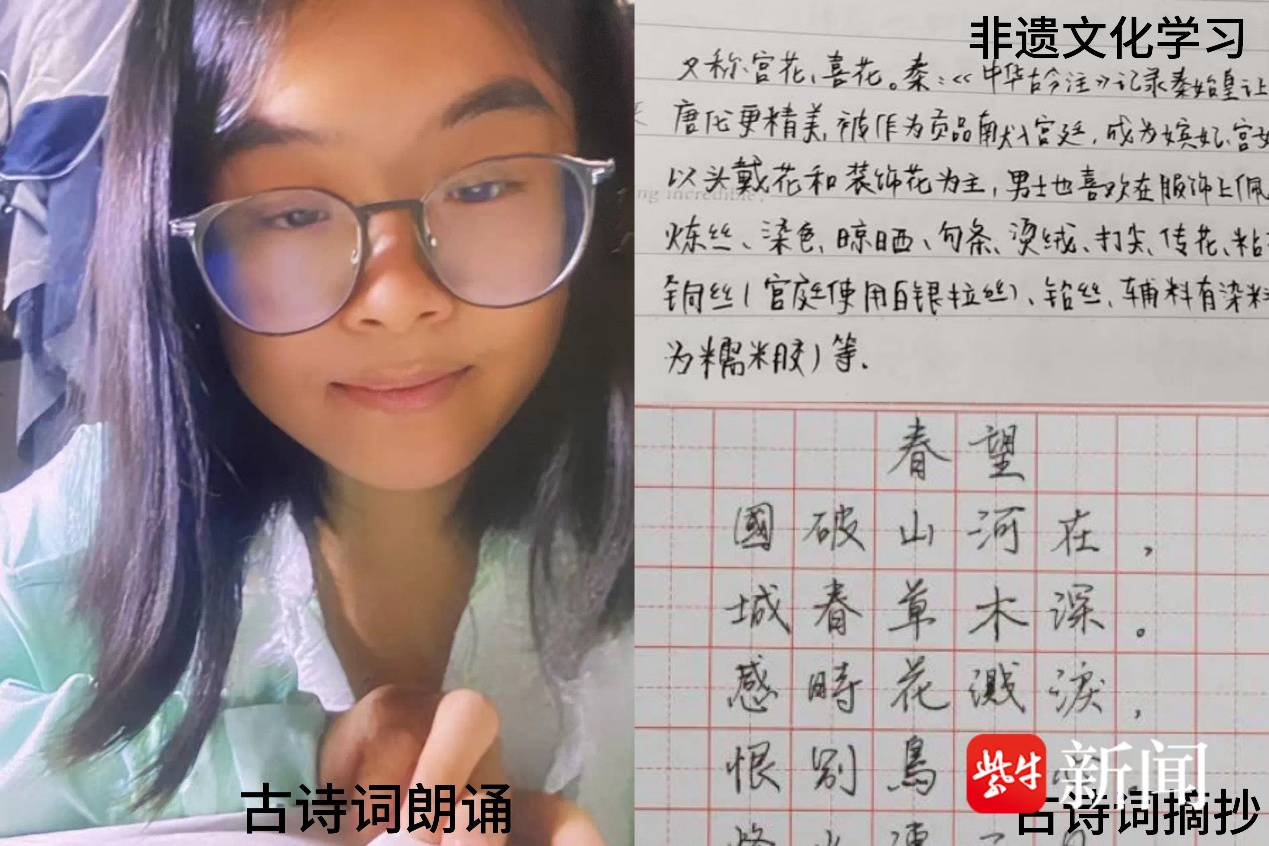 非遗文化学习
又称宫花、喜花。秦:《中华古今注》记录秦始皇让
唐代更精美,被作为贡品南犬宫廷,成为嫔妃、宫女
以头戴花和装饰花为主,男士也喜欢在服饰上佩
ng incredible.
炼丝、染色、晾晒、勾条、烫绒、打尖、传花、粘
铜丝(宫庭使用白银拉丝)、铅丝、辅料有染料
为糯米胶)等.
春望
國破山河在,
城春草木深。
感時花濺淚,
恨别鳥
紫牛新闻
古诗词朗诵
古诗词摘抄